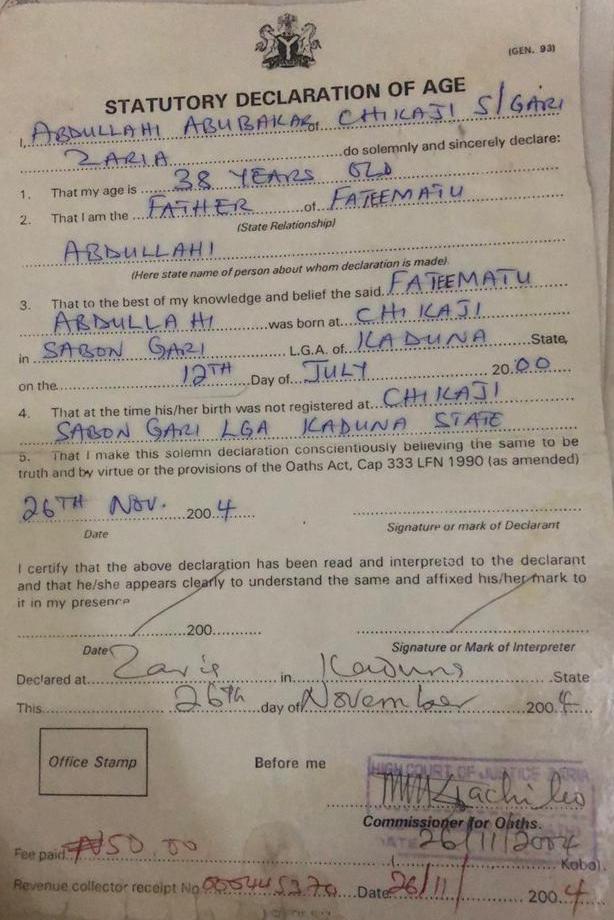 (GEN. 93)
STATUTORY DECLARATION OF AGE
I, ABDULLAHI ABUBAKAR of CHIKAJI S/GARI
ZARIA do solemnly and sincerely declare:
1. That my age is 38 YEARS OLD
2. That I am the FATHER of FATEEMATU
(State Relationship)
ABDULLAHI
(Here state name of person about whom declaration is made)
3. That to the best of my knowledge and belief the said FATEEMATU
ABDULLAHI was born at CHIKAJI
in SABON GARI L.G.A. of KADUNA State,
on the 12TH Day of JULY 20 00
4. That at the time his/her birth was not registered at CHIKAJI
SABON GARI LGA KADUNA STATE
5. That I make this solemn declaration conscientiously believing the same to be
truth and by virtue or the provisions of the Oaths Act, Cap 333 LFN 1990 (as amended)
26TH NOV. 200 4
Date Signature or mark of Declarant
I certify that the above declaration has been read and interpreted to the declarant
and that he/she appears clearly to understand the same and affixed his/her mark to
it in my presence
200
Date Signature or Mark of Interpreter
Declared at Zaria in Kaduna State
This 26th day of November 200 4
Office Stamp Before me
HIGH COURT OF JUSTICE ZARIA
Commissioner for Oaths.
26/11/2004
Fee paid ₦50.00 Kobo).
Revenue collector receipt No Date 26/11/ 200 4